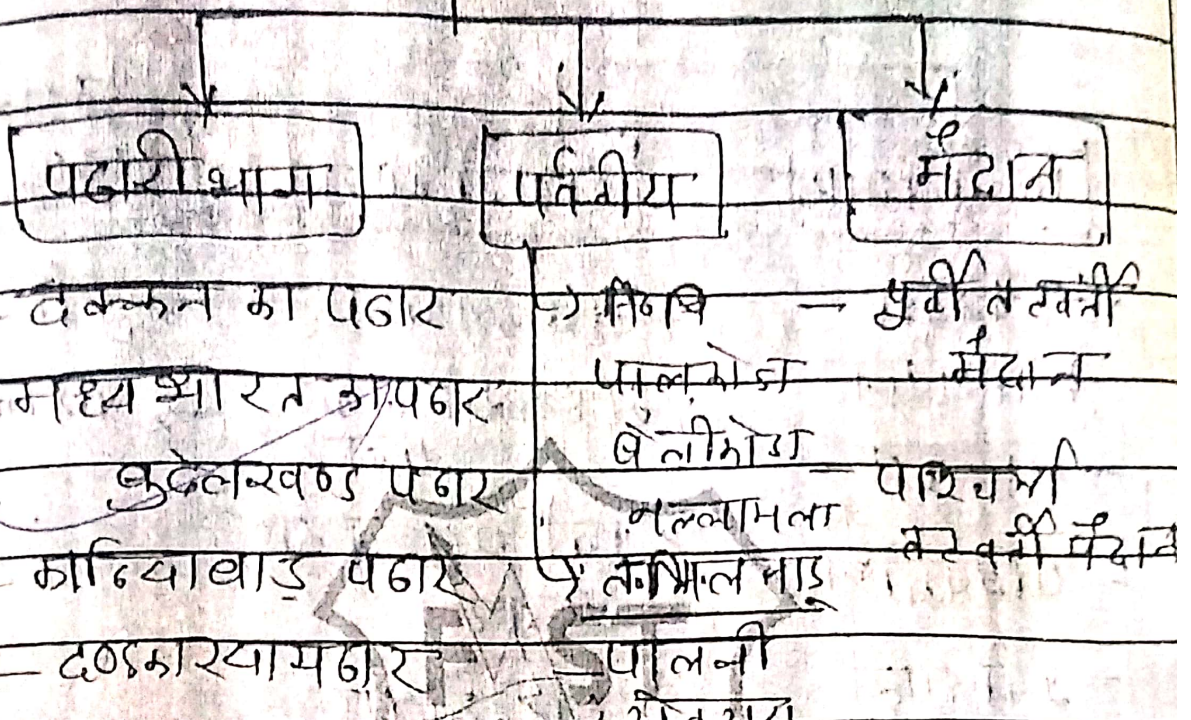 पठारी भाग
पर्वतीय
मैदान
दक्कन का पठार
मध्य भारत का पठार
बुन्देलखण्ड पठार
काठियावाड़ पठार
दण्डकारण्य पठार
पालकोंडा
वेलीकोंडा
नल्लामला
तमिलनाडु
पालनी
पूर्वी तटवर्ती
मैदान
पश्चिमी
तटवर्ती मैदान